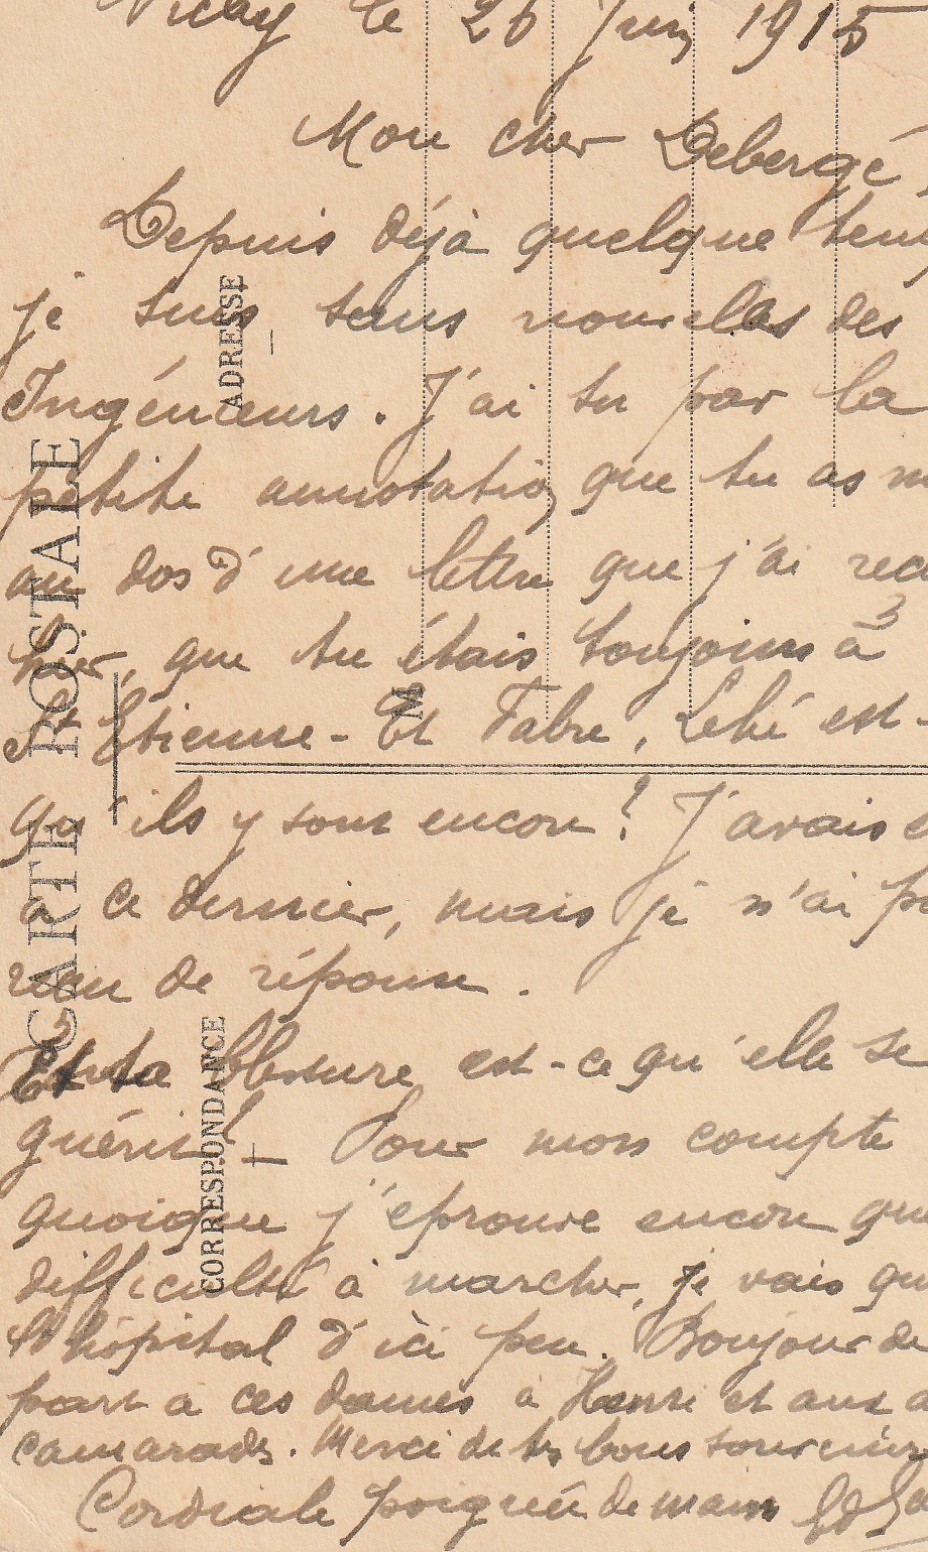 Vichy le 26 Juin 1915
Mon cher Debergé,
Depuis déjà quelque
je suis sans nouvelles des
Ingénieurs. J'ai su par la
petite annotation que tu as
au dos d'une lettre que j'ai
hier, que tu étais toujours à
St Etienne - Et Fabre, est-
qu'ils y sont encore ? J'avais
à ce dernier, mais je n'ai
reçu de réponse.
Et ta blessure est-ce qu'elle se
guérit ! - Pour mon compte
quoique j'éprouve encore
difficulté à marcher, je vais
l'hôpital d'ici peu. Bonjour de
part a ces dames à Henri et aux
camarades. Merci de tes bons souvenirs
Cordiale poignée de main
CARTE POSTALE
ADRESSE
CORRESPONDANCE